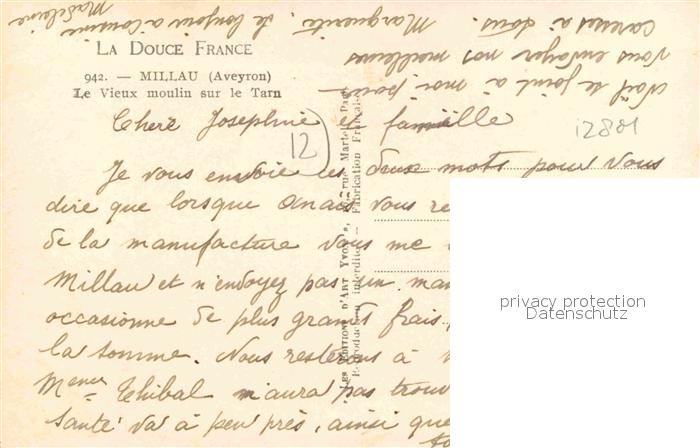 LA DOUCE FRANCE
942. — MILLAU (Aveyron)
Le Vieux moulin sur le Tarn
Chere Josephine et famille
12
12801
Je vous envoie ces deux mots pour vous
dire que lorsque Anais vous re
de la manufacture vous me
Millau et n'envoyez pas un man
occasionne de plus grands frais
la somme. Nous resterons à
Thibal m'aura pas trouv
Santé va à peu près, ainsi que
Noël se joint à moi pour
vous envoyer nos meilleures
caresses à tous. Marguerite. Le bonjour à Cousine
Madeleine
LES EDITIONS D'ART YVON, rue Martel, Paris
Reproduction interdite — Fabrication Française
privacy protection
Datenschutz